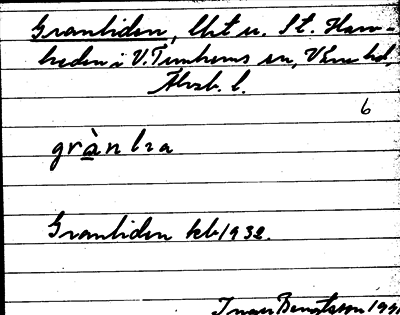 Grantiden, lht u. St. Ham-
heden i V. Tunhems sn, Väne hd,
Älvsb. l.
6
grànlıa
Grantiden kb 1932.
Ivar Bengtsson